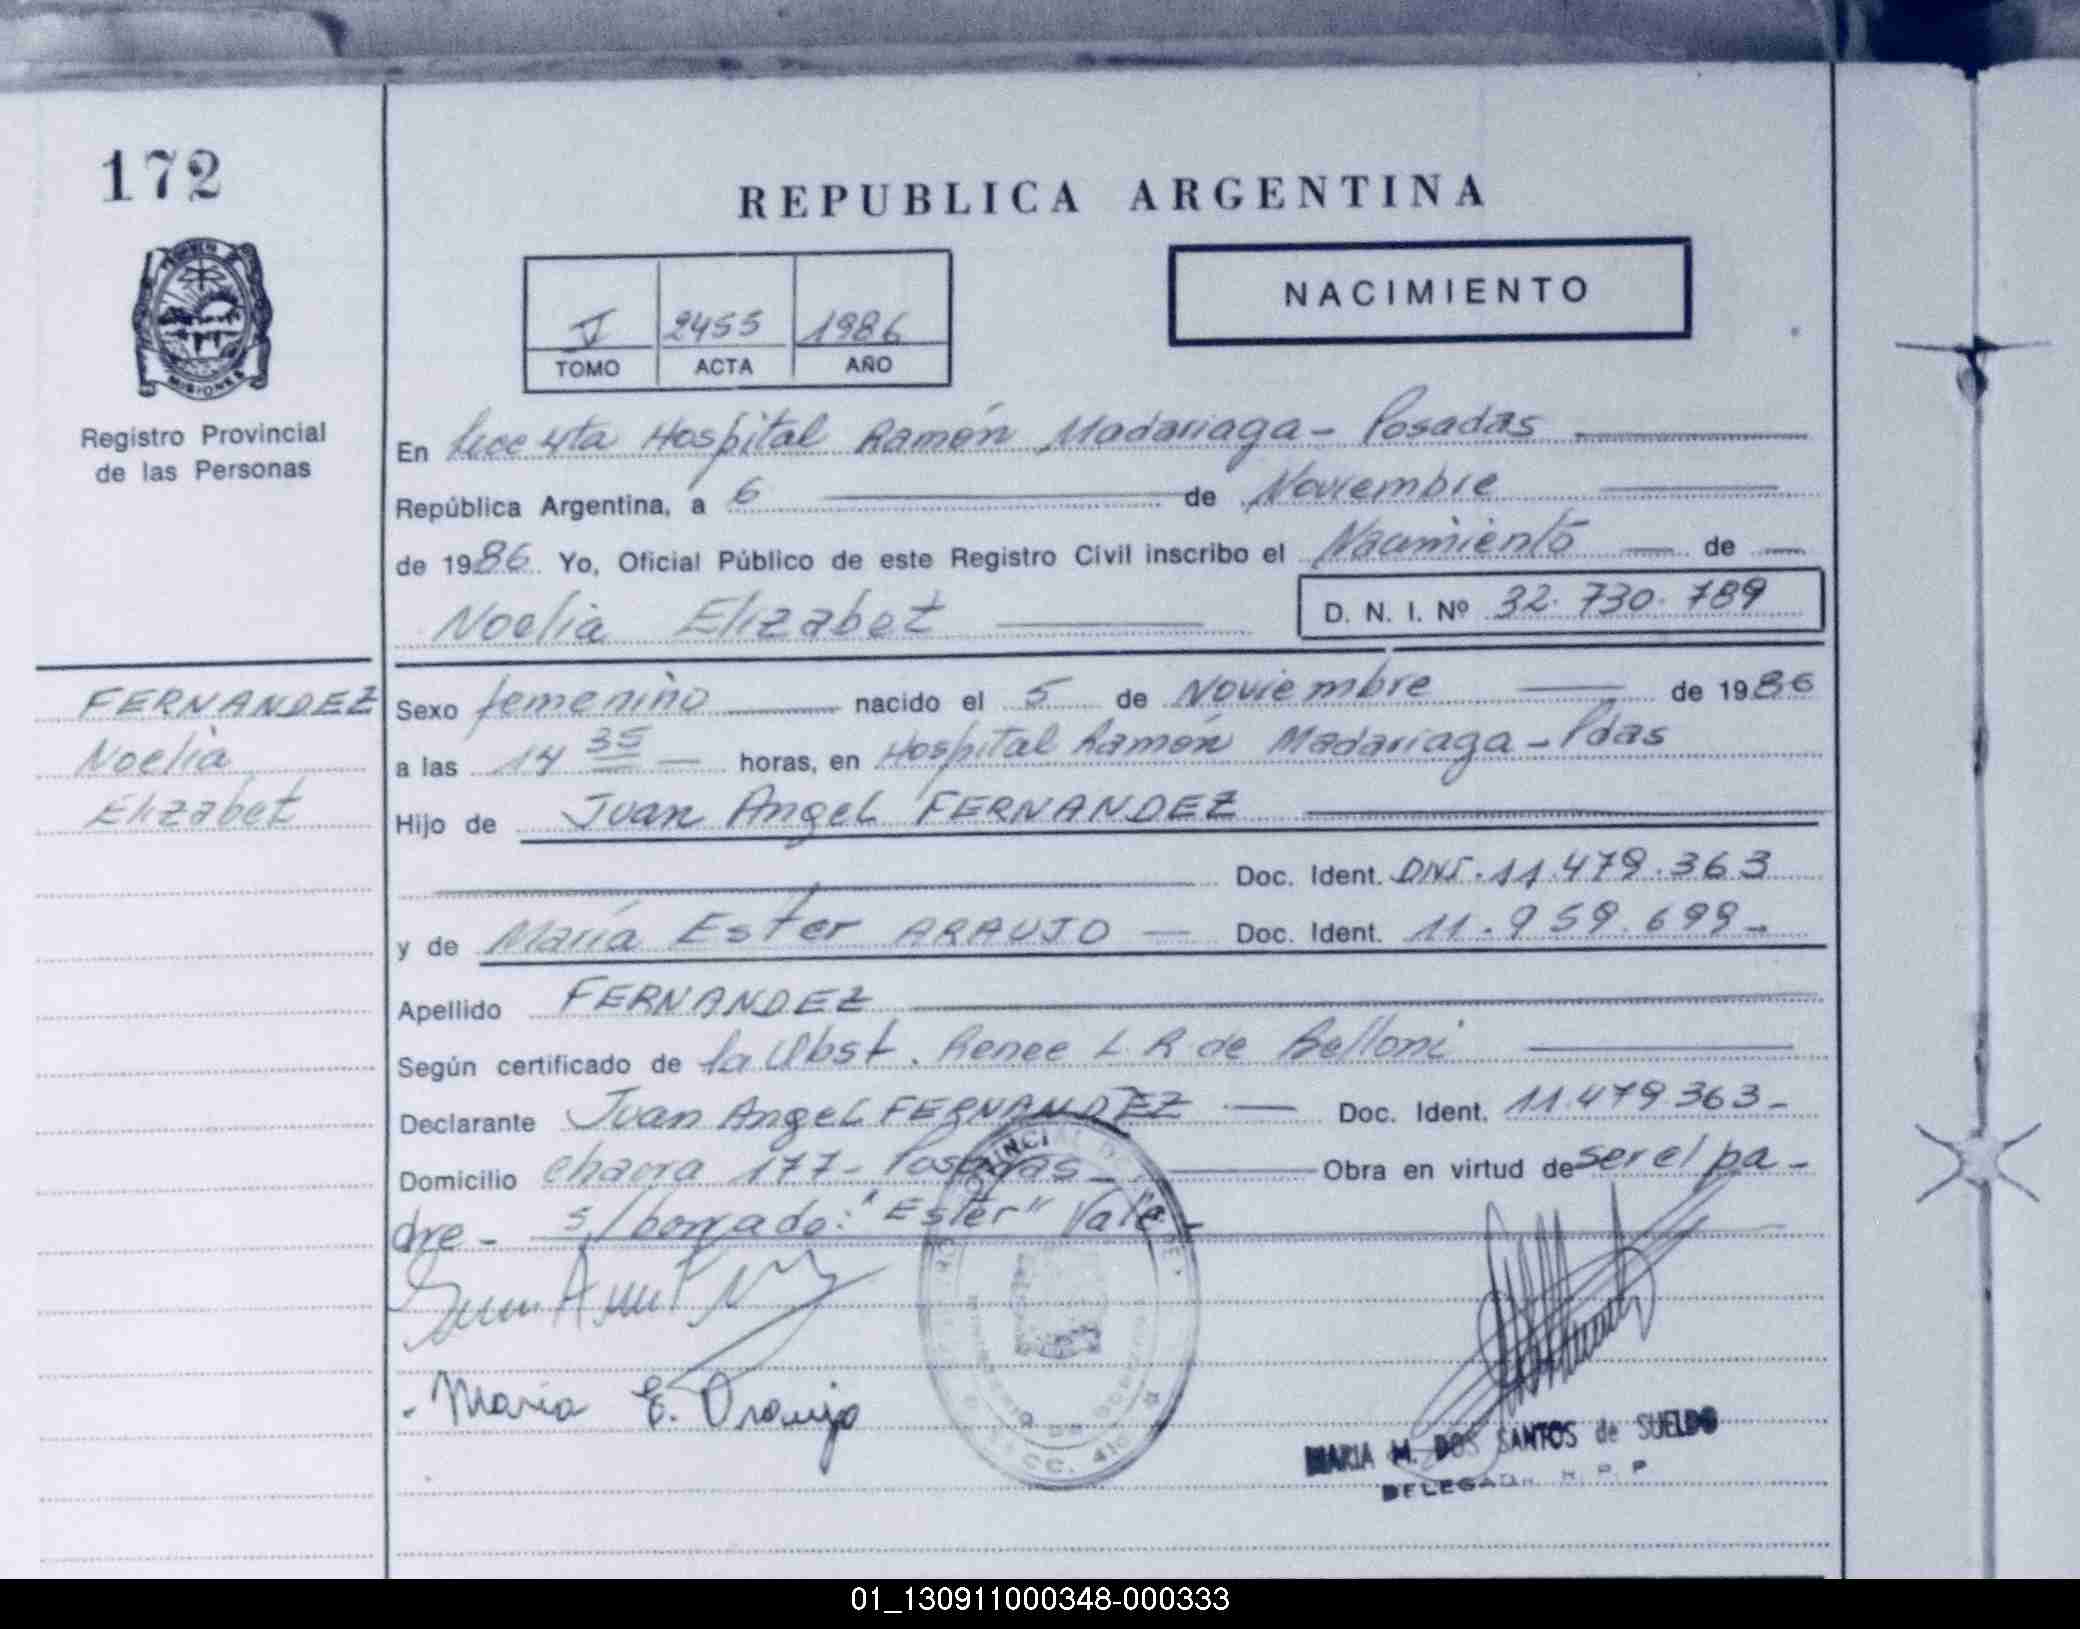 172
REPUBLICA ARGENTINA
NACIMIENTO
V 2455 1986
TOMO ACTA AÑO
MISIONES
Registro Provincial
de las Personas
En Secc 4ta Hospital Ramón Madariaga - Posadas
República Argentina, a 6 de Noviembre
de 1986. Yo, Oficial Público de este Registro Civil inscribo el Nacimiento de
Noelia Elizabet
D. N. I. Nº 32.730.789
FERNANDEZ
Noelia
Elizabet
Sexo femenino nacido el 5 de Noviembre de 1986
a las 14 35 horas, en Hospital Ramón Madariaga - Pdas
Hijo de Juan Angel FERNANDEZ
Doc. Ident. DNI. 11.479.363
y de María Ester ARAUJO Doc. Ident. 11.959.699-
Apellido FERNANDEZ
Según certificado de la Obst. Renee L. R de Belloni
Declarante Juan Angel FERNANDEZ Doc. Ident. 11.479.363-
Domicilio chacra 177- Posadas Obra en virtud de ser el pa-
dre - s/borrado: "Ester" Vale
María E. Araujo
MARIA M. DOS SANTOS de SUELDO
DELEGADA R. P. P
01_130911000348-000333